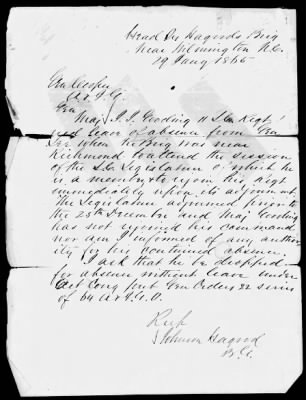 Head Qrs Hagoods Brig
near Wilmington N.C.
19 Jany 1865
Gen Cooper
A & I G
Gen
Maj J. J. Gooding 11 S.C. Regt
had leave of absence from Gen
Lee when the Brig was near
Richmond to attend the session
of the S.C. Legislature of which he
is a member & to rejoin his Regt
immediately upon its adjournment
The Legislature adjourned prior to
the 25th December and Maj Gooding
has not rejoined his command
nor am I informed of any author
ity for his continued absence.
I ask that he be dropped
for absence without leave under
Act Cong publ Gen Orders 22 series
of 64 A & I.G.O.
Resp
Johnson Hagood
B.G.